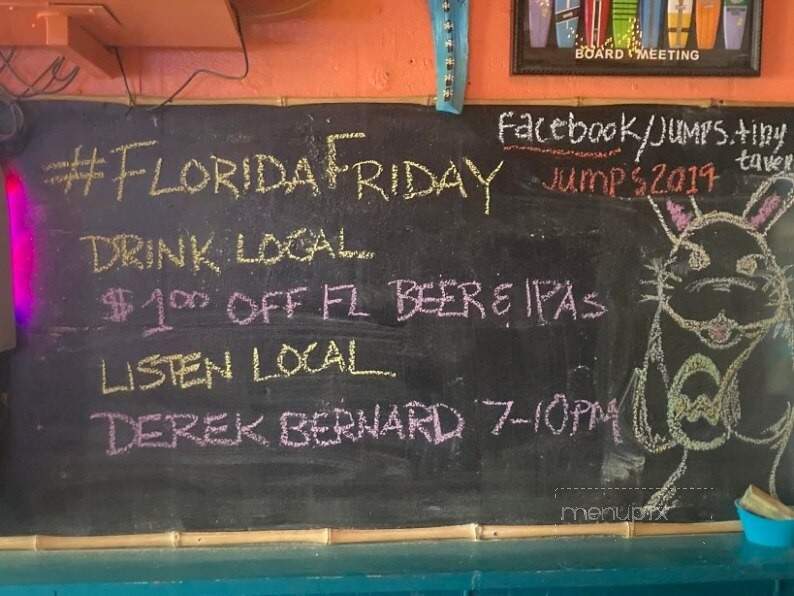 BOARD MEETING
Facebook/JUMPS.tiny
taver
Jumps2019
#FLORIDAFRIDAY
DRINK LOCAL
$1.00 OFF FL BEER & IPAS
LISTEN LOCAL
DEREK BERNARD 7-10PM
menupix